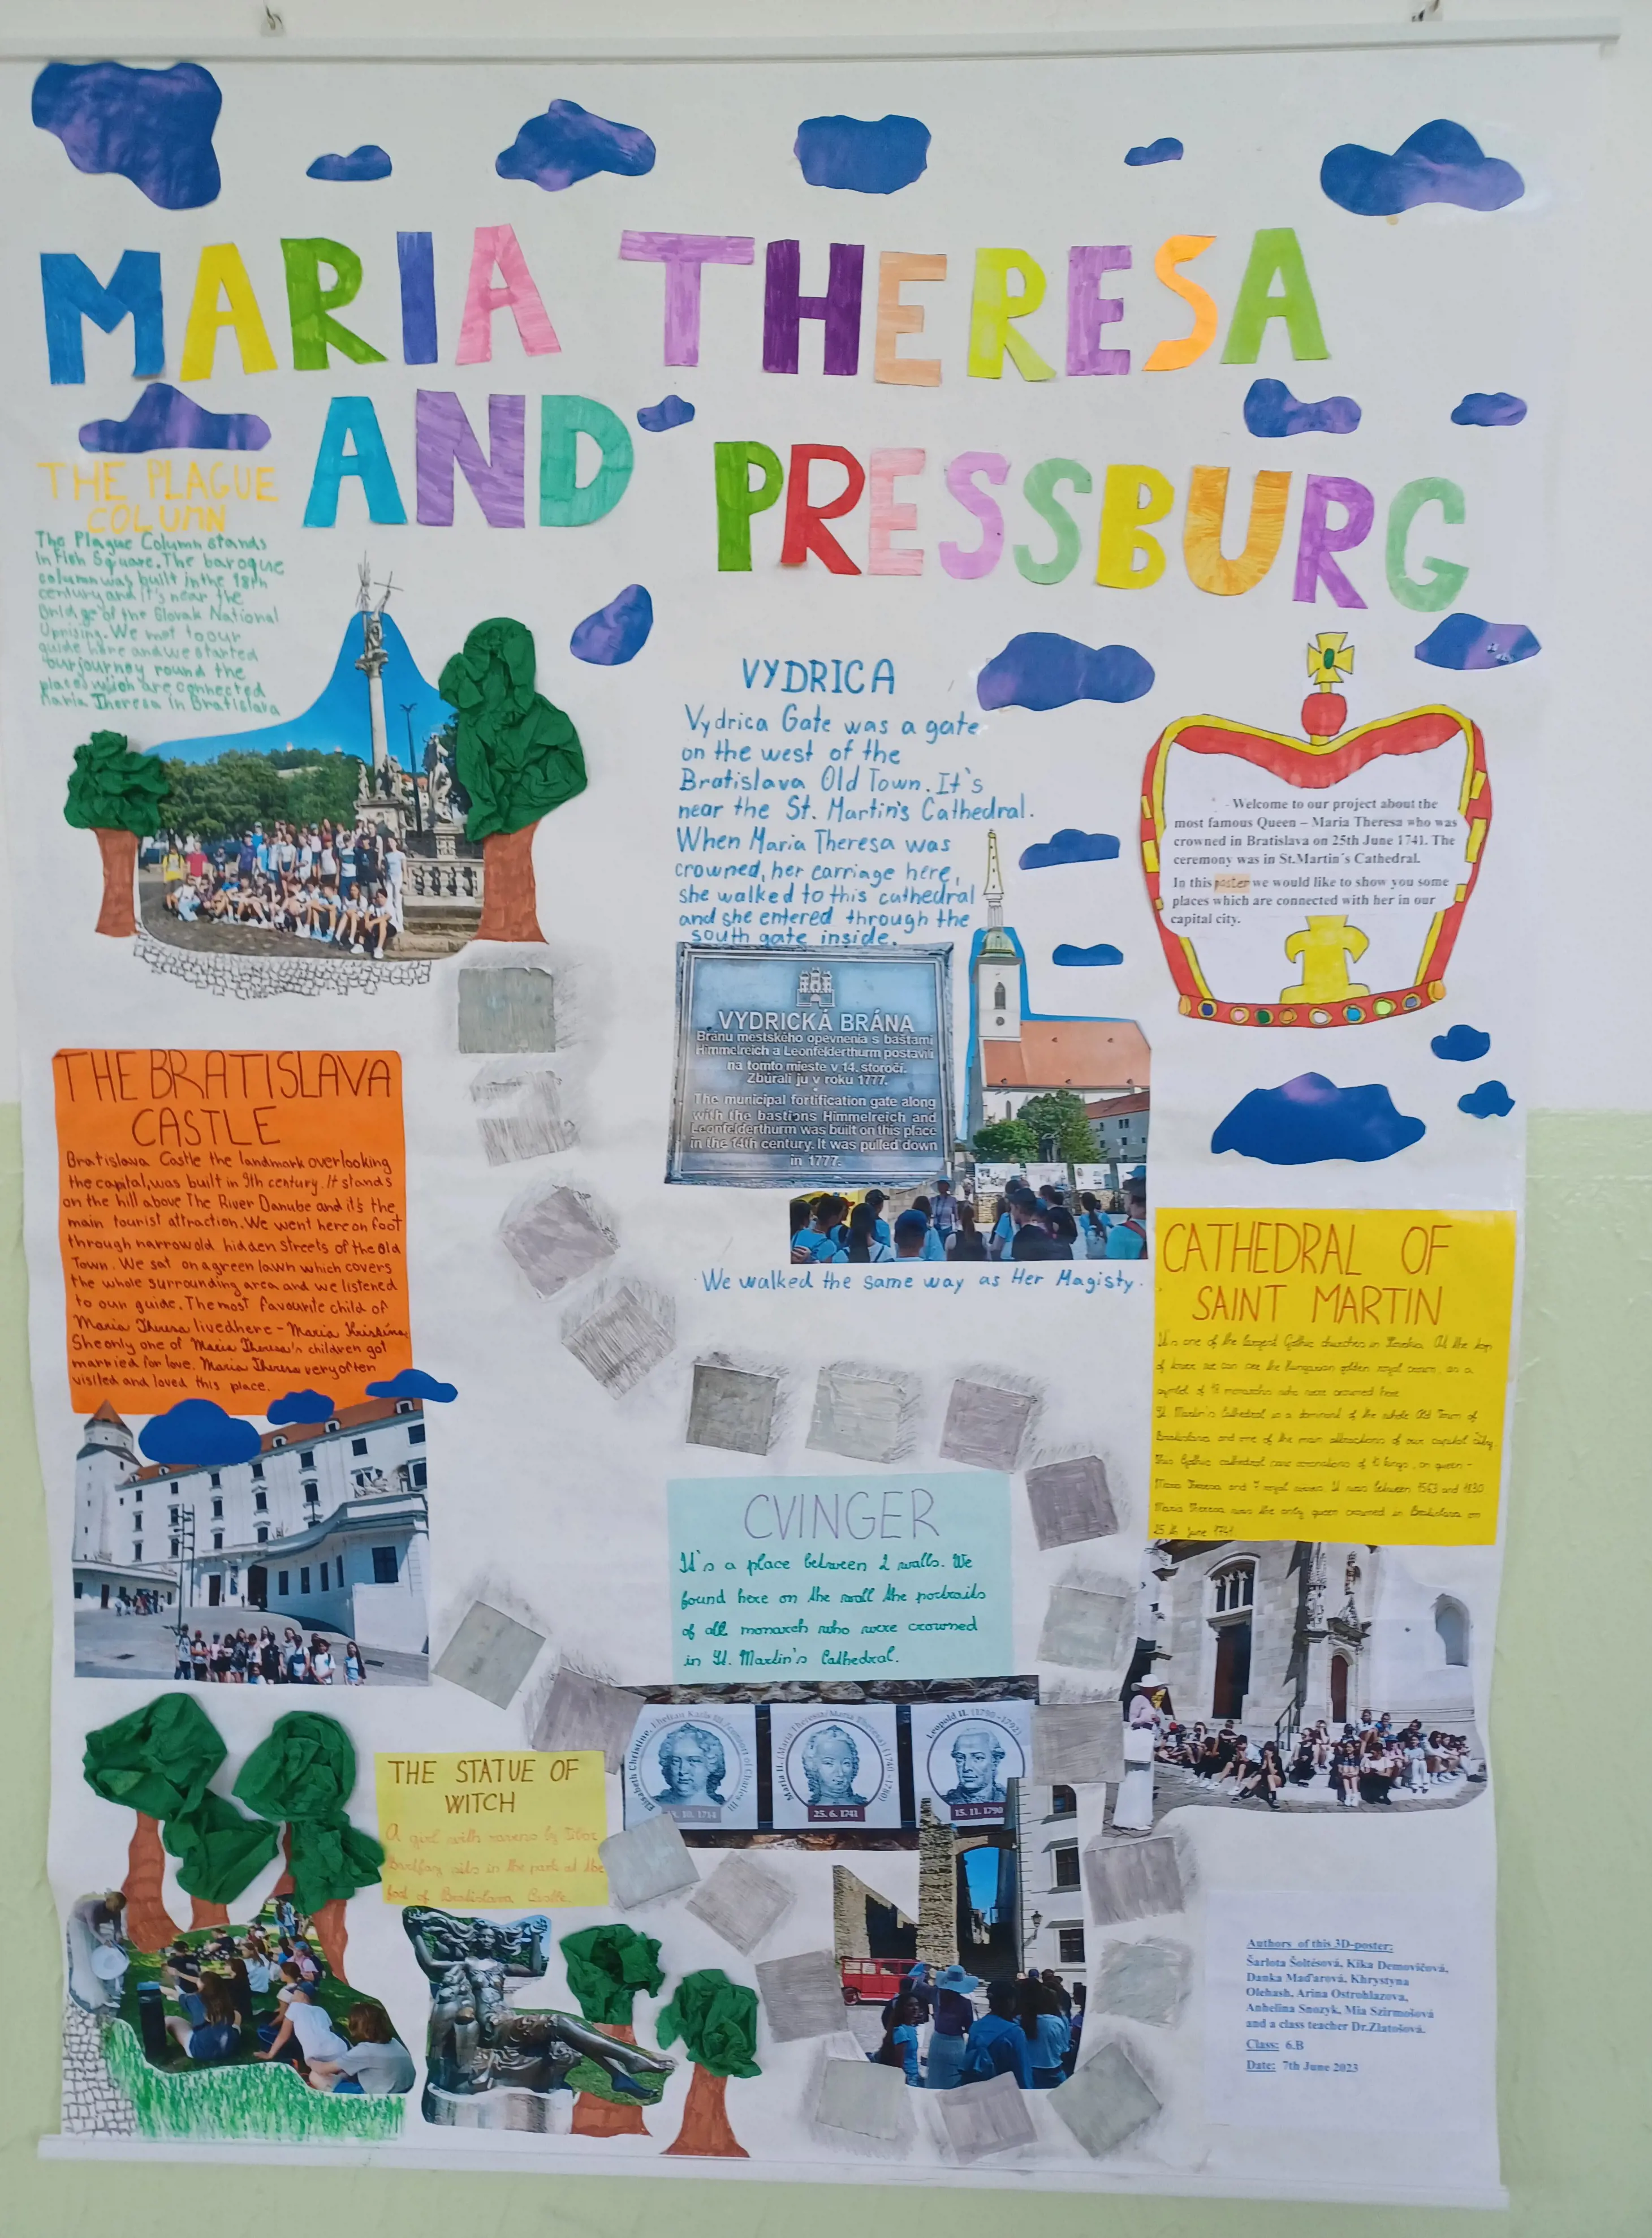 MARIA THERESA
AND PRESSBURG
THE PLAGUE
COLUMN
The Plague Column stands
in Fish Square. The baroque
column was built in the 18th
century and it's near the
Bridge of the Slovak National
Uprising. We met to our
guide here and we started
our journey round the
places which are connected
Maria Theresa in Bratislava
VYDRICA
Vydrica Gate was a gate
on the west of the
Bratislava Old Town. It's
near the St. Martin's Cathedral.
When Maria Theresa was
crowned, her carriage here,
she walked to this cathedral
and she entered through the
south gate inside.
Welcome to our project about the
most famous Queen – Maria Theresa who was
crowned in Bratislava on 25th June 1741. The
ceremony was in St.Martin´s Cathedral.
In this poster we would like to show you some
places which are connected with her in our
capital city.
VYDRICKÁ BRÁNA
Bránu mestského opevnenia s baštami
Himmelreich a Leonfelderthurm postavili
na tomto mieste v 14. storočí.
Zbúrali ju v roku 1777.
The municipal fortification gate along
with the bastions Himmelreich and
Leonfelderthurm was built on this place
in the 14th century. It was pulled down
in 1777.
We walked the same way as Her Magisty.
THE BRATISLAVA
CASTLE
Bratislava Castle the landmark overlooking
the capital, was built in 9th century. It stands
on the hill above The River Danube and it's the
main tourist attraction. We went here on foot
through narrow old hidden streets of the Old
Town. We sat on a green lawn which covers
the whole surrounding area and we listened
to our guide. The most favourite child of
Maria Theresa lived here - Maria Kristina.
She only one of Maria Theresa's children got
married for love. Maria Theresa very often
visited and loved this place.
CATHEDRAL OF
SAINT MARTIN
It's one of the largest Gothic churches in Slovakia. At the top
of tower we can see the Hungarian golden royal crown, as a
symbol of 18 monarchs who were crowned here
St. Martin's Cathedral is a dominant of the whole Old Town of
Bratislava and one of the main attractions of our capital city.
This Gothic cathedral coronations of 10 kings, on queen -
Maria Theresa and 7 royal It was between 1563 and 1830
Maria Theresa was the only queen crowned in Bratislava on
25 th June 1741
CVINGER
It's a place between 2 walls. We
found here on the wall the portraits
of all monarch who were crowned
in St. Martin's Cathedral.
Elisabeth Christine, Karla III./consort of Charles III
10. 1714
Mária II. (Mária Terézia/Maria Theresa) (1740 - 1780)
25. 6. 1741
Leopold II. (1790 - 1792)
15. 11. 1790
THE STATUE OF
WITCH
A girl with ravens by Tibor
Bártfay sits in the park at the
foot of Bratislava Castle.
Authors of this 3D-poster:
Šarlota Šoltésová, Kika Demovičová,
Danka Maďarová, Khrystyna
Olehash, Arina Ostrohlazova,
Anhelina Snozyk, Mia Szirmošová
and a class teacher Dr.Zlatošová.
Class: 6.B
Date: 7th June 2023